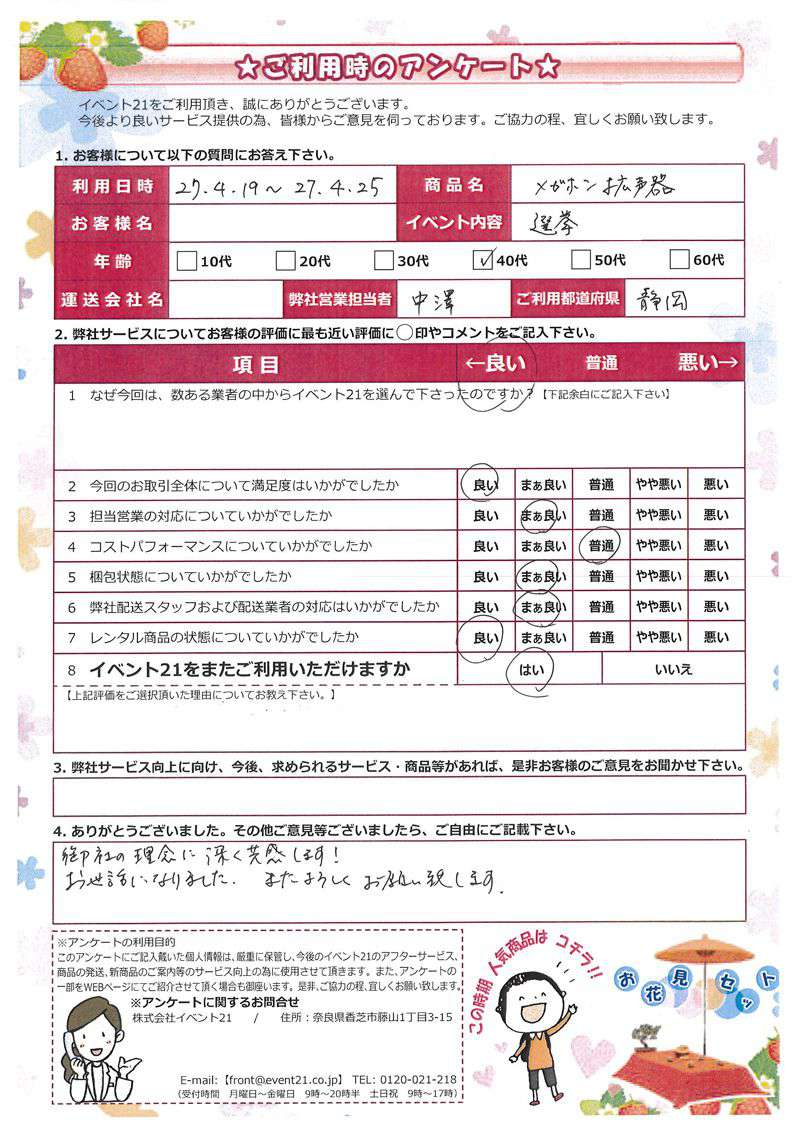 ★ご利用時のアンケート★
イベント21をご利用頂き、誠にありがとうございます。
今後より良いサービス提供の為、皆様からご意見を伺っております。ご協力の程、宜しくお願い致します。
1. お客様について以下の質問にお答え下さい。
利用日時 27.4.19〜27.4.25 商品名 メガホン拡声器
お客様名 イベント内容 選挙
年齢 10代 20代 30代 ✓40代 50代 60代
運送会社名 弊社営業担当者 中澤 ご利用都道府県 静岡
2. 弊社サービスについてお客様の評価に最も近い評価に◯印やコメントをご記入下さい。
項目 ←良い 普通 悪い→
1 なぜ今回は、数ある業者の中からイベント21を選んで下さったのですか？【下記余白にご記入下さい】
2 今回のお取引全体について満足度はいかがでしたか 良い まぁ良い 普通 やや悪い 悪い
3 担当営業の対応についていかがでしたか 良い まぁ良い 普通 やや悪い 悪い
4 コストパフォーマンスについていかがでしたか 良い まぁ良い 普通 やや悪い 悪い
5 梱包状態についていかがでしたか 良い まぁ良い 普通 やや悪い 悪い
6 弊社配送スタッフおよび配送業者の対応はいかがでしたか 良い まぁ良い 普通 やや悪い 悪い
7 レンタル商品の状態についていかがでしたか 良い まぁ良い 普通 やや悪い 悪い
8 イベント21をまたご利用いただけますか はい いいえ
【上記評価をご選択頂いた理由についてお教え下さい。】
3. 弊社サービス向上に向け、今後、求められるサービス・商品等があれば、是非お客様のご意見をお聞かせ下さい。
4. ありがとうございました。その他ご意見等ございましたら、ご自由にご記載下さい。
御社の理念に深く共感します！
お世話になりました. またよろしくお願い致します.
※アンケートの利用目的
このアンケートにご記入戴いた個人情報は、厳重に保管し、今後のイベント21のアフターサービス、
商品の発送、新商品のご案内等のサービス向上の為に使用させて頂きます。また、アンケートの
一部をWEBページにてご紹介させて頂く場合も御座います。是非、ご協力の程、宜しくお願い致します。
※アンケートに関するお問合せ
株式会社イベント21 / 住所：奈良県香芝市藤山1丁目3-15
E-mail:【front@event21.co.jp】 TEL: 0120-021-218
（受付時間 月曜日〜金曜日 9時〜20時半 土日祝 9時〜17時）
この時期 人気商品は コチラ!!
お花見セット